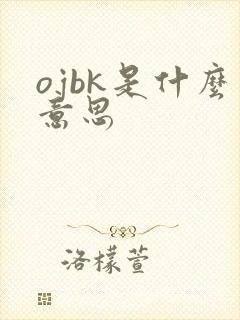 ojbk是什麼
意思
洛檬萱